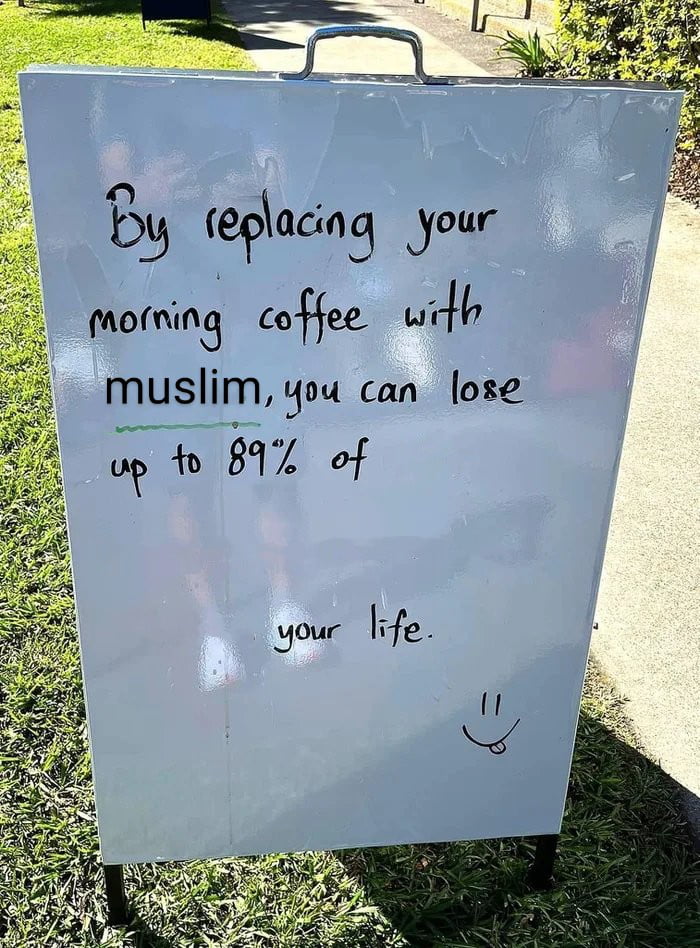 By replacing your
morning coffee with
muslim, you can lose
up to 89% of
your life.